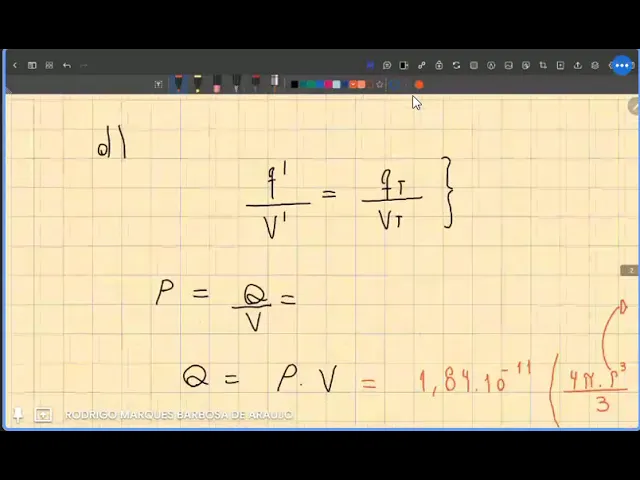 d)
q' / V' = qT / VT }
ρ = Q / V =
Q = ρ . V = 1,84.10^-11 ( 4π.r^3 / 3
2
RODRIGO MARQUES BARBOSA DE ARAUJO